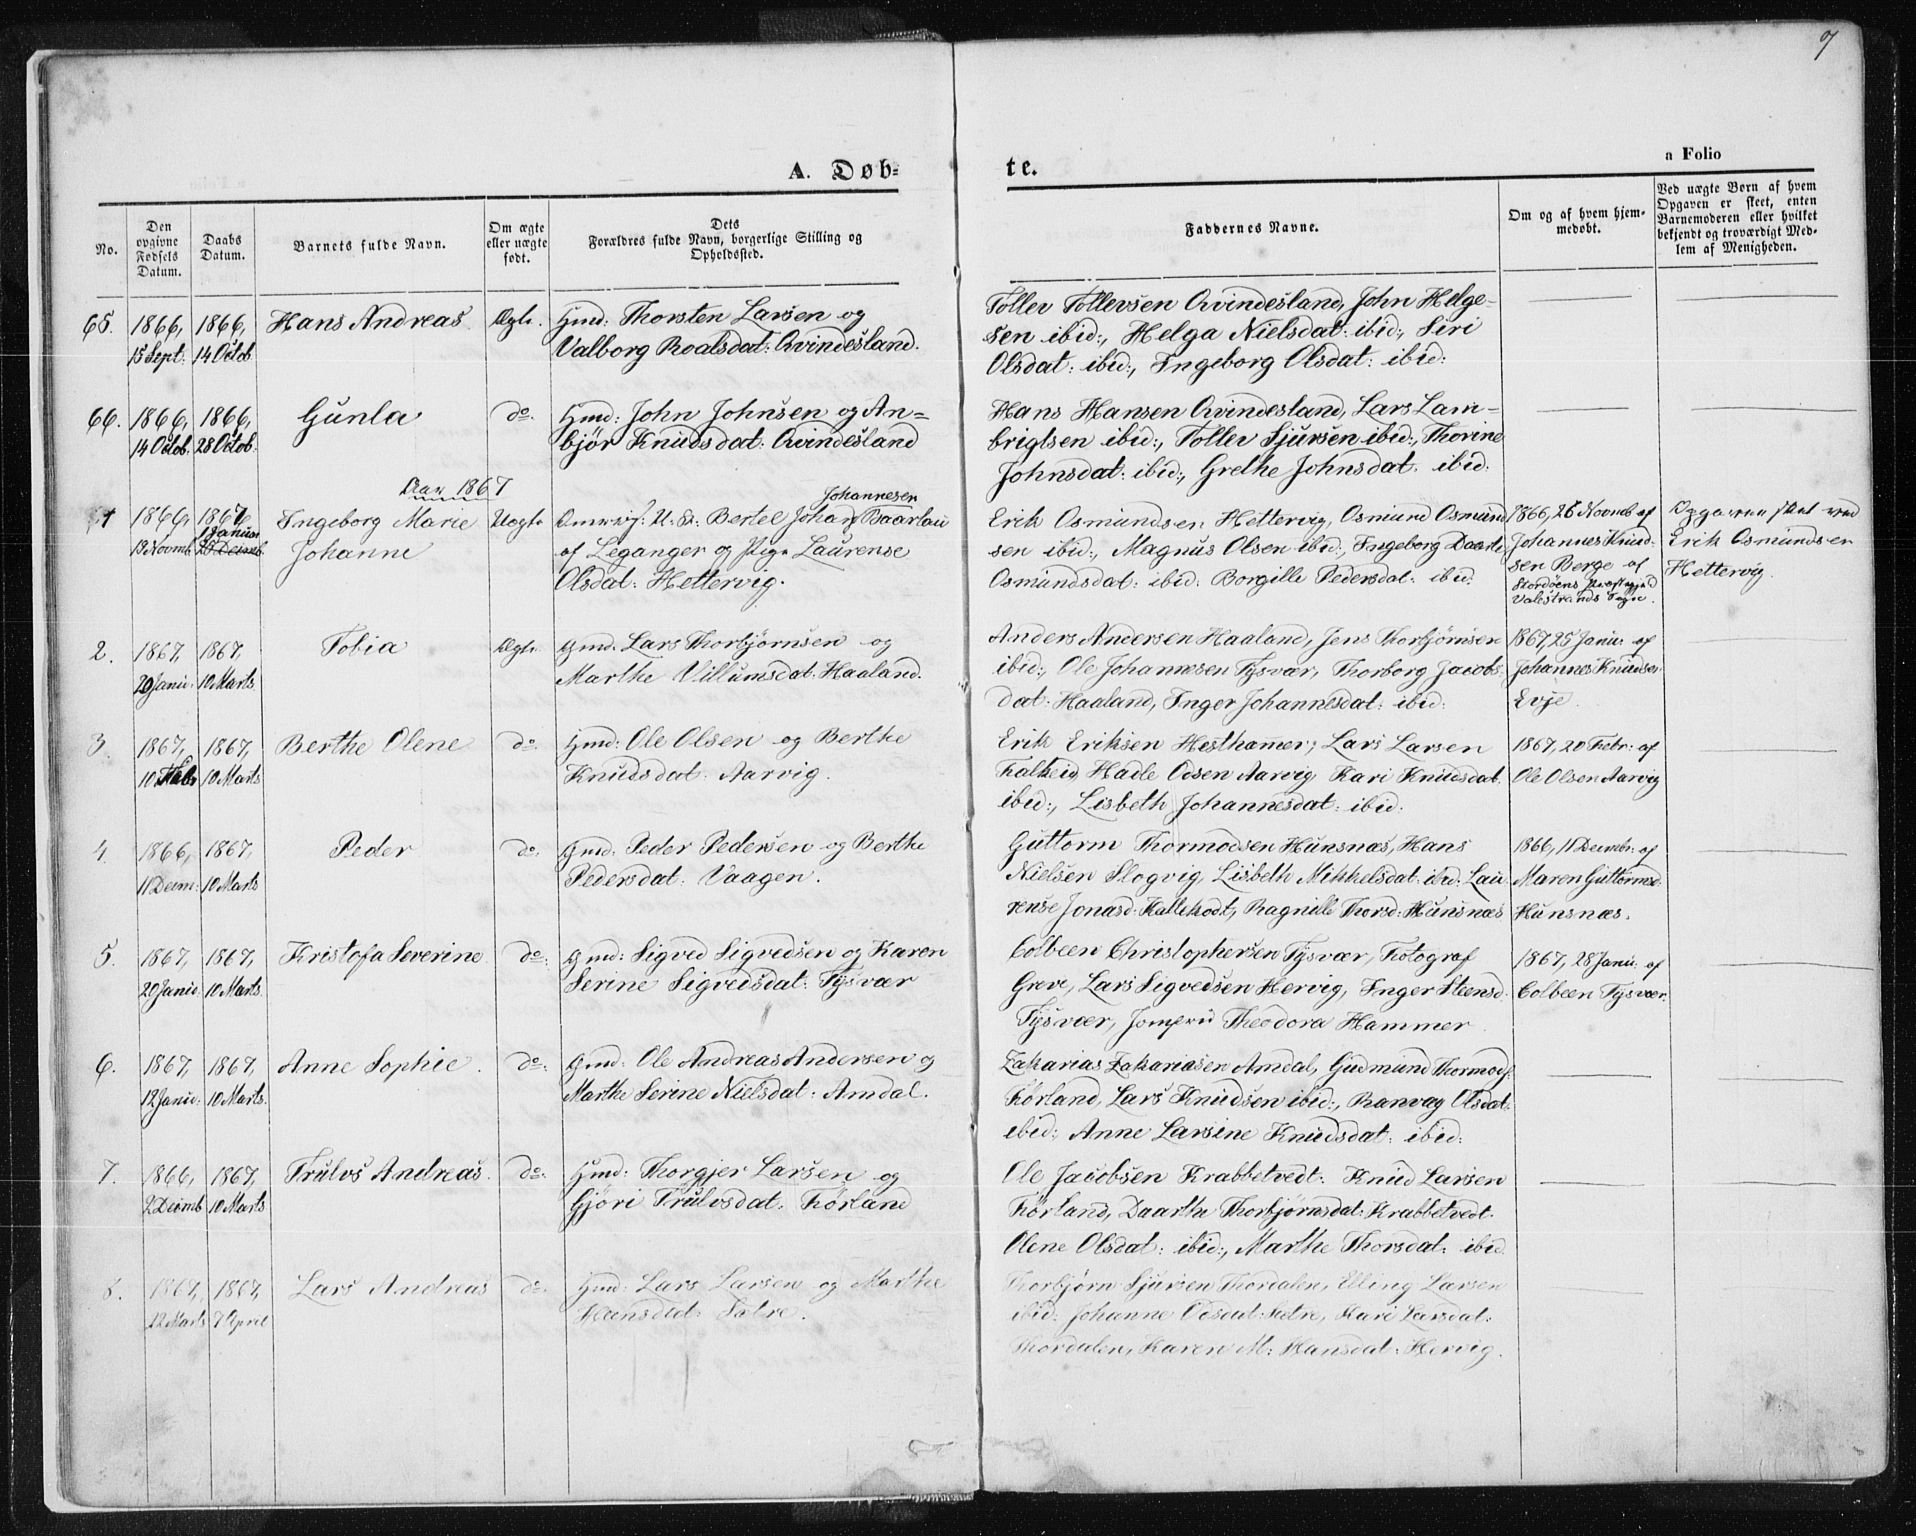 7
A. Døb-
te.
a Folio
No.
Den
opgivne
Fødsels
Datum.
Daabs
Datum.
Barnets fulde Navn.
Om ægte
eller uægte
født.
Dets
Forældres fulde Navn, borgerlige Stilling og
Opholdssted.
Faddernes Navne.
Om og af hvem hjem-
medøbt.
Ved uægte Børn af hvem
Opgaven er skeet, enten
Barnemoderen eller hvilket
bekjendt og troværdigt Med-
lem af Menigheden.
65.
1866,
15 Sept:
1866,
14 Octob
Hans Andreas
Ægte.
Gmd: Thorsten Larsen og
Valborg Roalsdat: Qvindesland.
Toller Tollevsen Qvindesland, John Helge-
sen ibid:, Helga Nielsdat: ibid:, Siri
Olsdat: ibid:, Ingeborg Olsdat: ibid:
66.
1866,
14 Octob.
1866,
28 Octob:
Gunla
do.
Gmd: John Johnsen og An-
bjør Knudsdat: Qvindesland
Hans Hansen Qvindesland, Lars Lam-
brigtsen ibid:, Toller Sjursen ibid:, Thorine
Johnsdat: ibid:, Grethe Johnsdat. ibid:
Aar 1867
1
1866,
19 Novmb.
1867,
1 Januar
26 Decmb.
Ingeborg Marie
Johanne
Uægte
U. K: Bertel Johan Baarlau
Johannesen
af Leganger og Pige Laurense
Olsdat: Hettervig.
Erik Osmundsen Hettervig, Osmund Osmund
sen ibid:, Magnus Olsen ibid:, Ingeborg Daarte
Osmundsdat: ibid: Borgille Pedersdat: ibid:
1866, 26 Novmb af
Johannes Knud-
sen Berge af
Stordøens Præstegjeld
Valestrands Sogn.
Opgaven skeet ved
Erik Osmundsen
Hettervig.
2.
1867,
20 Janu:
1867,
10 Marts
Tobia
Ægte.
Gmd: Lars Thorbjørnsen og
Marthe Villumsdat: Haaland.
Anders Andersen Haaland, Jens Thorbjørnsen
ibid:, Ole Johannesen Tysvær, Thorborg Jacobs-
dat: Haaland, Inger Johannesdat: ibid:
1867, 25 Janu: af
Johannes Knudsen
Evje.
3.
1867,
10 Febr
1867,
10 Marts
Berthe Olene
do.
Gmd: Ole Olsen og Berthe
Knudsdat: Aarvig.
Erik Eriksen Hesthamer, Lars Larsen
Falkeid, Hadle Odsen Aarvig, Kari Knudsdat.
ibid:, Lisbeth Johannesdat: ibid.
1867, 20 Febr: af
Ole Olsen Aarvig
4.
1866,
11 Decm:
1867,
10 Marts
Peder
do.
Gmd: Peder Pedersen og Berthe
Pedersdat: Vaagen.
Guttorm Thormodsen Hunsnæs, Hans
Nielsen Slogvig, Lisbeth Mikkelsdat: ibid: Lau-
rense Jonasd: Kallekodt, Ragnille Thorsd: Hunsnæs
1866, 11 Decmbr: af
Maren Guttormsd:
Hunsnæs.
5.
1867,
20 Janu:
1867,
10 Marts
Kristofa Severine
do:
Gmd: Sigved Sigvedsen og Karen
Serine Sigvedsdat: Tysvær
Colbeen Christophersen Tysvær, Fotograf
Greve, Lars Sigvedsen Hervig, Inger Steensd:
Tysvær, Jomfru Theodora Hammer
1867, 28 Janu: af
Colbeen Tysvær.
6.
1867,
12 Janu:
1867,
10 Marts.
Anne Sophie.
do:
Gmd: Ole Andreas Andersen og
Marthe Serine Nielsdat: Amdal.
Zakarias Zakariasen Amdal, Gudmund Thormods
Førland, Lars Knudsen ibid:, Ranvag Olsdat:
ibid:, Anne Larsine Knudsdat: ibid:
7.
1866,
2 Decmb
1867,
10 Marts
Trulvs Andreas.
do:
Gmd: Thorgjer Larsen og
Gjøri Trulvsdat: Førland
Ole Jacobsen Krabbetvedt: Knud Larsen
Førland, Daarthe Thorbjørnsdat: Krabbetvedt.
Olene Olsdat: ibid:, Marthe Thorsdat: ibid
8.
1867,
12 Marts
1867,
7 April
Lars Andreas
do:
Gmd: Lars Larsen og Marthe
Hansdat: Sætre.
Thorbjørn Sjursen Thordalen, Elling Larsen
ibid: Johanne Odsdat: Sætre, Kari Larsdat:
Thordalen, Karen M: Hansdat: Hervig.